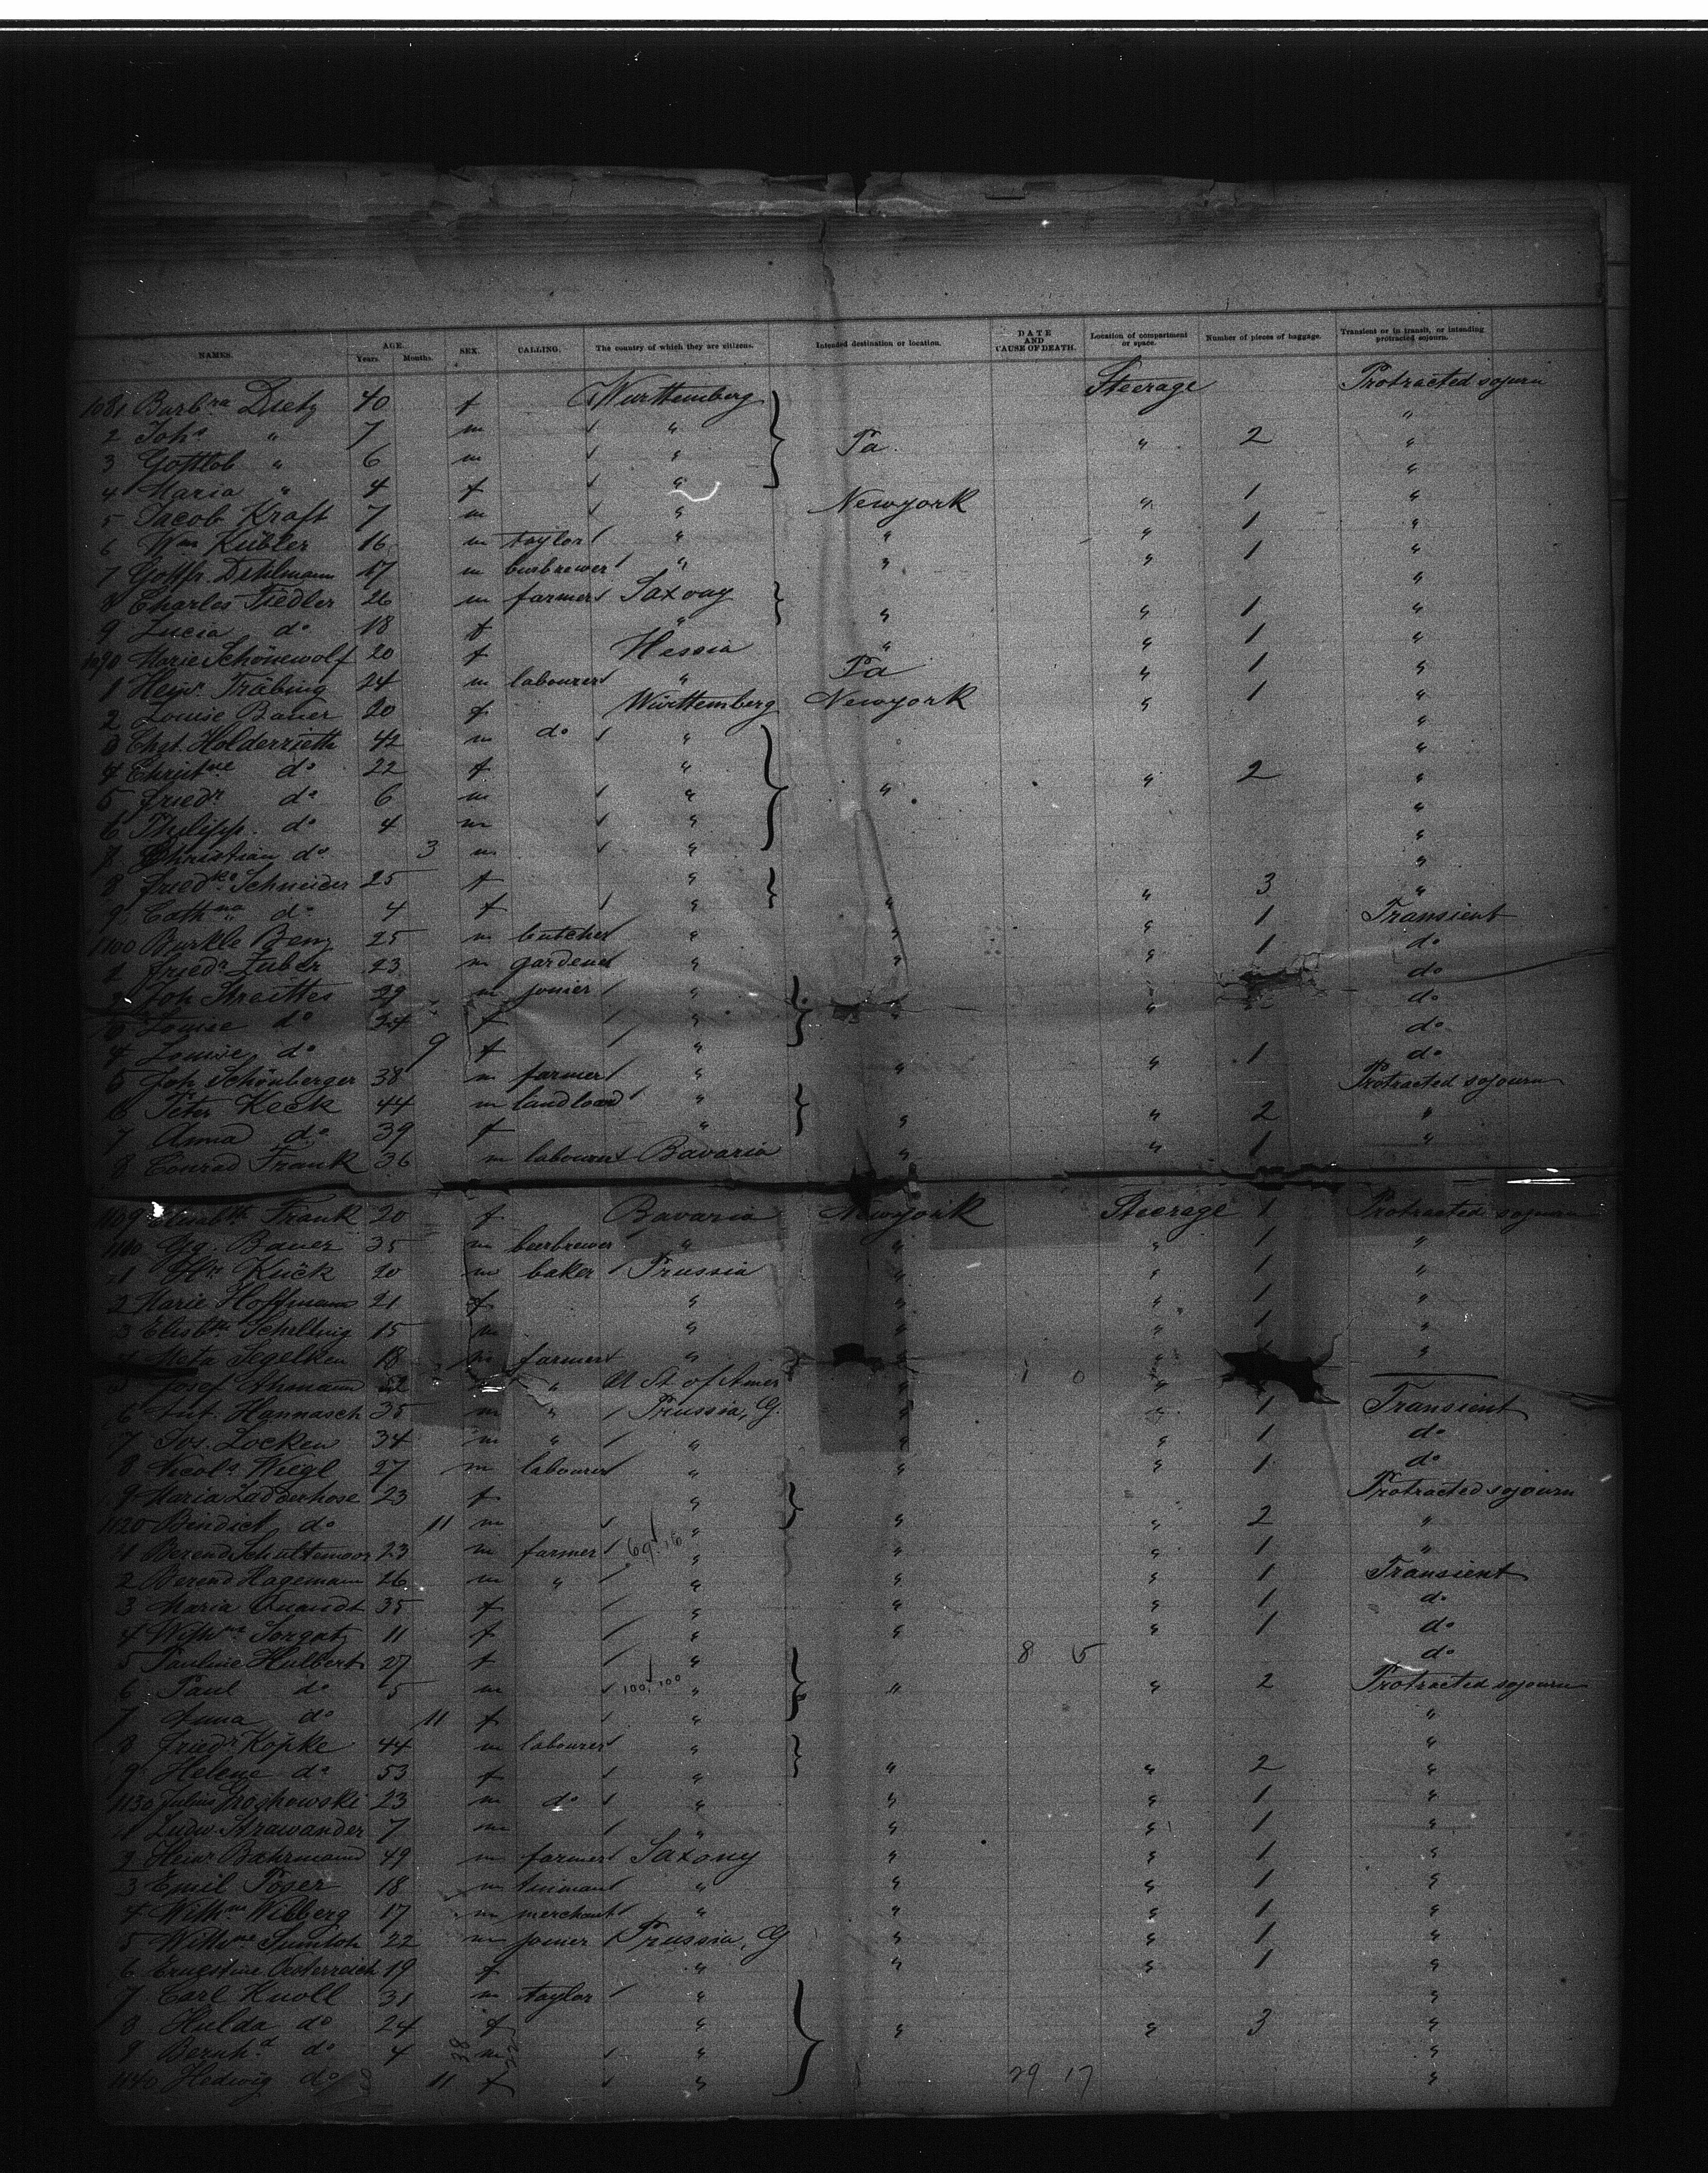 NAMES. AGE. Years. Months. SEX. CALLING. The country of which they are citizens. Intended destination or location. DATE AND CAUSE OF DEATH. Location of compartment or space. Number of pieces of baggage. Transient or in transit, or intending protracted sojourn.
1081 Barbra Dietz 40 f Württemberg Steerage Protracted sojourn
2 Johs " 7 m " "
3 Gottlob " 6 m " Pa. " 2 "
4 Maria " 4 f " "
5 Jacob Kraft 7 m " Newyork " 1 "
6 Wm Kübler 16 m taylor " " " 1 "
7 Gottfr. 17 m beerbrewer " " " 1 "
8 Charles Fiedler 26 m farmer Saxony "
9 Lucia do 18 f " " " 1 "
1090 Marie Schönewolf 20 f Hessia " " 1 "
1 Heinr. Träbing 24 m labourer " Pa " 1 "
2 Louise Bauer 20 f Württemberg Newyork " 1 "
3 Chst. Holderrieth 42 m do " "
4 Christne do 22 f " "
5 Friedr do 6 m " " " 2 "
6 Philipp. do 4 m " "
7 Christian do 3 m " "
8 Friedke Schneider 25 f " "
9 Cathna do 4 f " " " 3 "
1100 Burkle Benz 25 m butcher " " " 1 Transient
1 Friedr Zuber 23 m gardener " " " 1 do
2 Joh 29 m joiner " do
3 Louise do 24 f " " " do
4 Louise do 9 f " do
5 Joh Schönberger 38 m farmer " " " 1 do
6 Peter Keck 44 m landloard " Protracted sojourn
7 Anna do 39 f " " " 2 "
8 Conrad Frank 36 m labourer Bavaria " " 1 "
1109 Elisabth Frank 20 f Bavaria Newyork Steerage 1 Protracted sojourn
1110 Gg. Bauer 35 m beerbrewer " " " 1 "
1 Hr. Kück 20 m baker Prussia " " 1 "
2 Marie Hoffmann 21 f " " " 1 "
3 Elisbth Schelling 15 m " " " 1 "
4 Meta Segelken 18 m farmer " " "
5 Josef " U St. of Amer " 1 0 "
6 Ant. Hannasch 35 m " Prussia, G. " " 1 Transient
7 Jos. Locken 34 m " " " " 1 do
8 Nicols Wiegl 27 m labourer " " " 1 do
9 Maria Ladderhose 23 f " Protracted sojourn
1120 Bindict do 11 m " " " 2 "
1 Berend Schultemoor 23 m farmer " " " 1 "
2 Berend Hagemann 26 m " " " " 1 Transient
3 Maria Quandt 35 f " " " 1 do
4 Withne Sorgatz 11 f " " " 1 do
5 Pauline Hulbert 27 f " 8 5 do
6 Paul do 5 m " " " 2 Protracted sojourn
7 Anna do 11 f " "
8 Friedr Köpke 44 m labourer " "
9 Helene do 53 f " " " 2 "
1130 Julius 23 m do " " " 1 "
1 Ludw. 7 m " " " 1 "
2 Heinr. Bahrmann 49 m farmer Saxony " " 1 "
3 Emil Poser 18 m " " " 1 "
4 Withne Wibberg 17 m merchant " " " 1 "
5 22 m joiner Prussia, G " " 1 "
6 Ernestine Oesterreich 19 f " " " 1 "
7 Carl Knoll 31 m taylor " "
8 Hulda do 24 f " " " 3 "
9 Bernhd do 4 m " "
1140 Hedwig do 11 f " 29 17 "